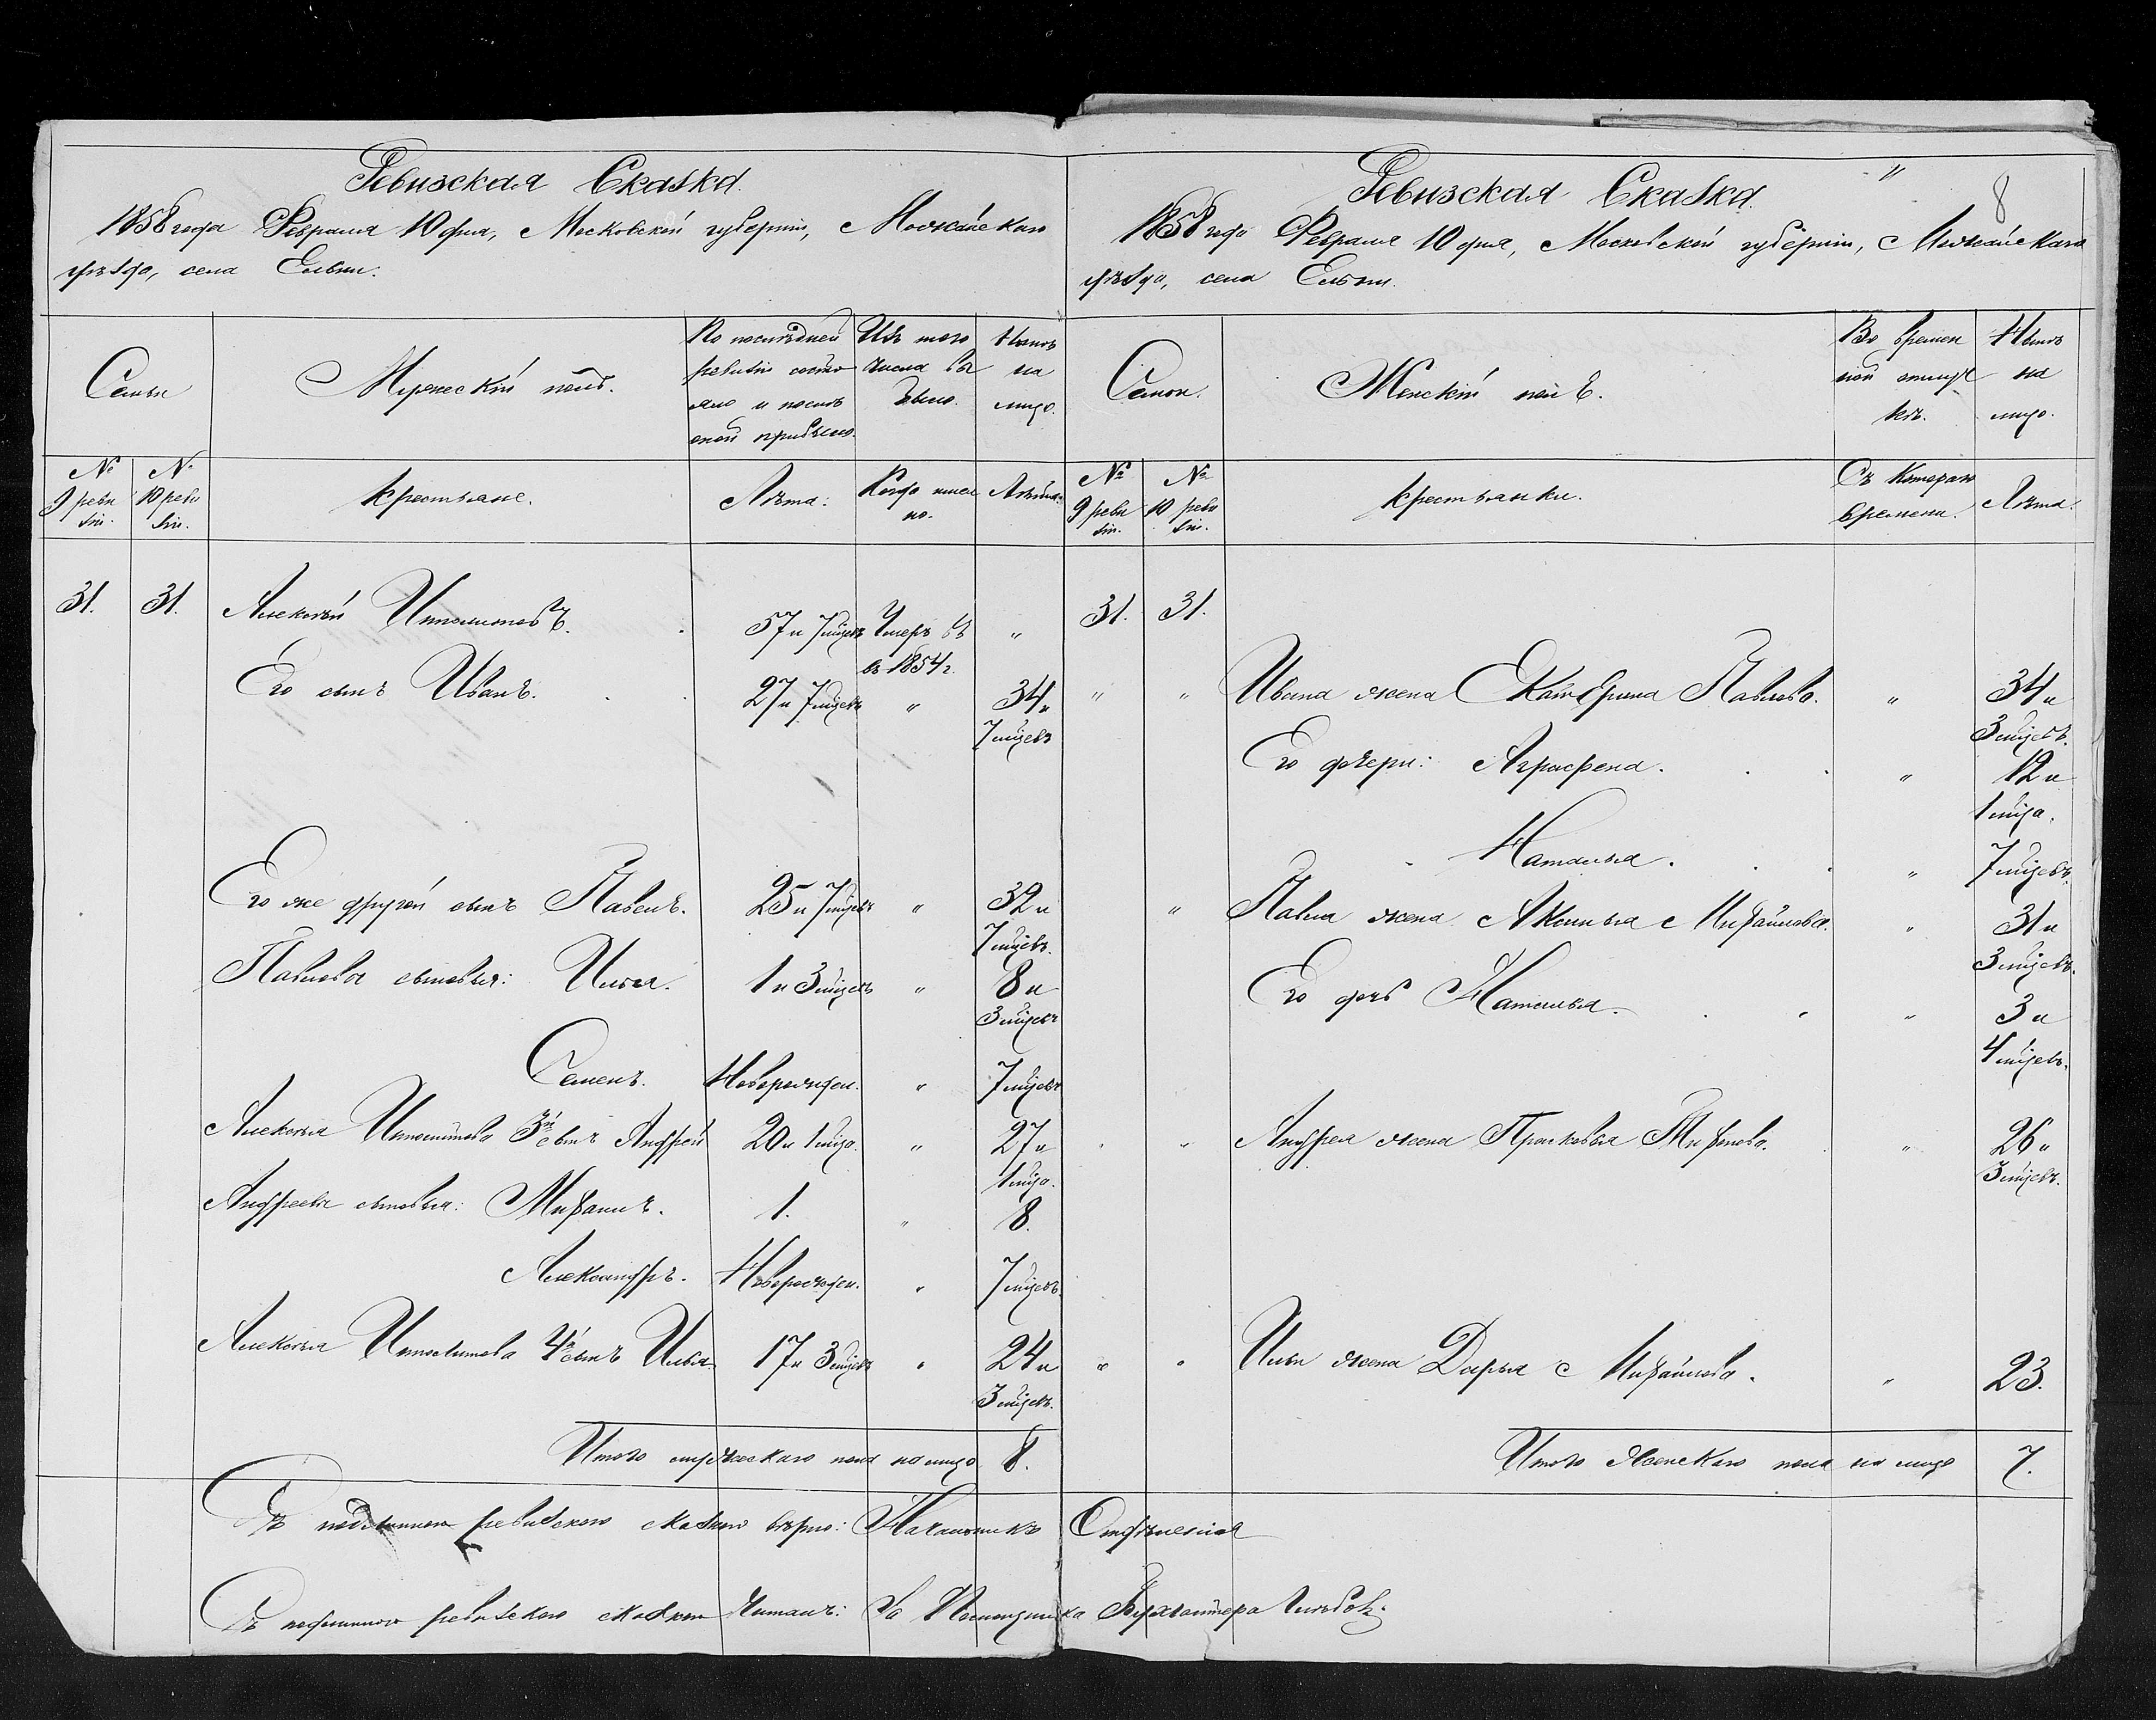 Ревизская Сказка.
1858 года Февраля 10 дня, Московской губерніи, Можайскаго
уѣзда, села Ельни.
Семьи
Мужескій полъ.
По послѣдней
ревизіи состо
яло и послѣ
оной прибыло.
Изъ того
числа вы
было.
Нынѣ
на
лицо.
№
9 реви
зіи.
№
10 реви
зіи.
Крестьяне.
Лѣта.
Когда имен
но.
Лѣта.
31. 31. Алексѣй Ипполитовъ. 57 и 7 мцевъ Умеръ въ "
въ 1854 г.
Его сынъ Иванъ. 27 и 7 мцевъ " 34 и
7 мцевъ
Его же другой сынъ Павелъ. 25 и 7 мцевъ " 32 и
7 мцевъ.
Павлова сыновья: Илья. 1 и 3 мцевъ " 8 и
3 мцевъ
Семенъ. Новорожден. " 7 мцевъ
Алексѣя Ипполитова 3й сынъ Андрей 20 и 1 мца. " 27 и
1 мца.
Андреевы сыновья: Михаилъ. 1. " 8.
Александръ. Новорожден. " 7 мцевъ.
Алексѣя Ипполитова 4й сынъ Илья 17 и 3 мцевъ " 24 и
3 мцевъ.
Итого мужескаго пола на лицо 8.
Ревизская Сказка. "
8
1858 года Февраля 10 дня, Московской губерніи, Можайскаго
уѣзда, села Ельни.
Семьи.
Женскій полъ.
Во времен
ной отлуч
кѣ.
Нынѣ
на
лицо.
№
9 реви
зіи.
№
10 реви
зіи.
Крестьянки.
Съ котораго
времени.
Лѣта.
31. 31.
" " Ивана жена Екатерина Павлова. " 34 и
3 мцевъ.
Его дочери: Аграфена. " 12 и
1 мца.
Наталья. " 7 мцевъ.
" Павла жена Акулина Михайлова. " 31 и
3 мцевъ.
Его дочь Наталья. " 3 и
4 мцевъ.
" Андрея жена Прасковья Миронова. " 26 и
3 мцевъ.
" " Ильи жена Дарья Михайлова. " 23.
Итого Женскаго пола на лицо 7.
Съ подлинною ревизскою сказкою вѣрно: Начальникъ Отдѣленія
Съ подлинною ревизскою сказкою читалъ: За Помощника Бухгалтера